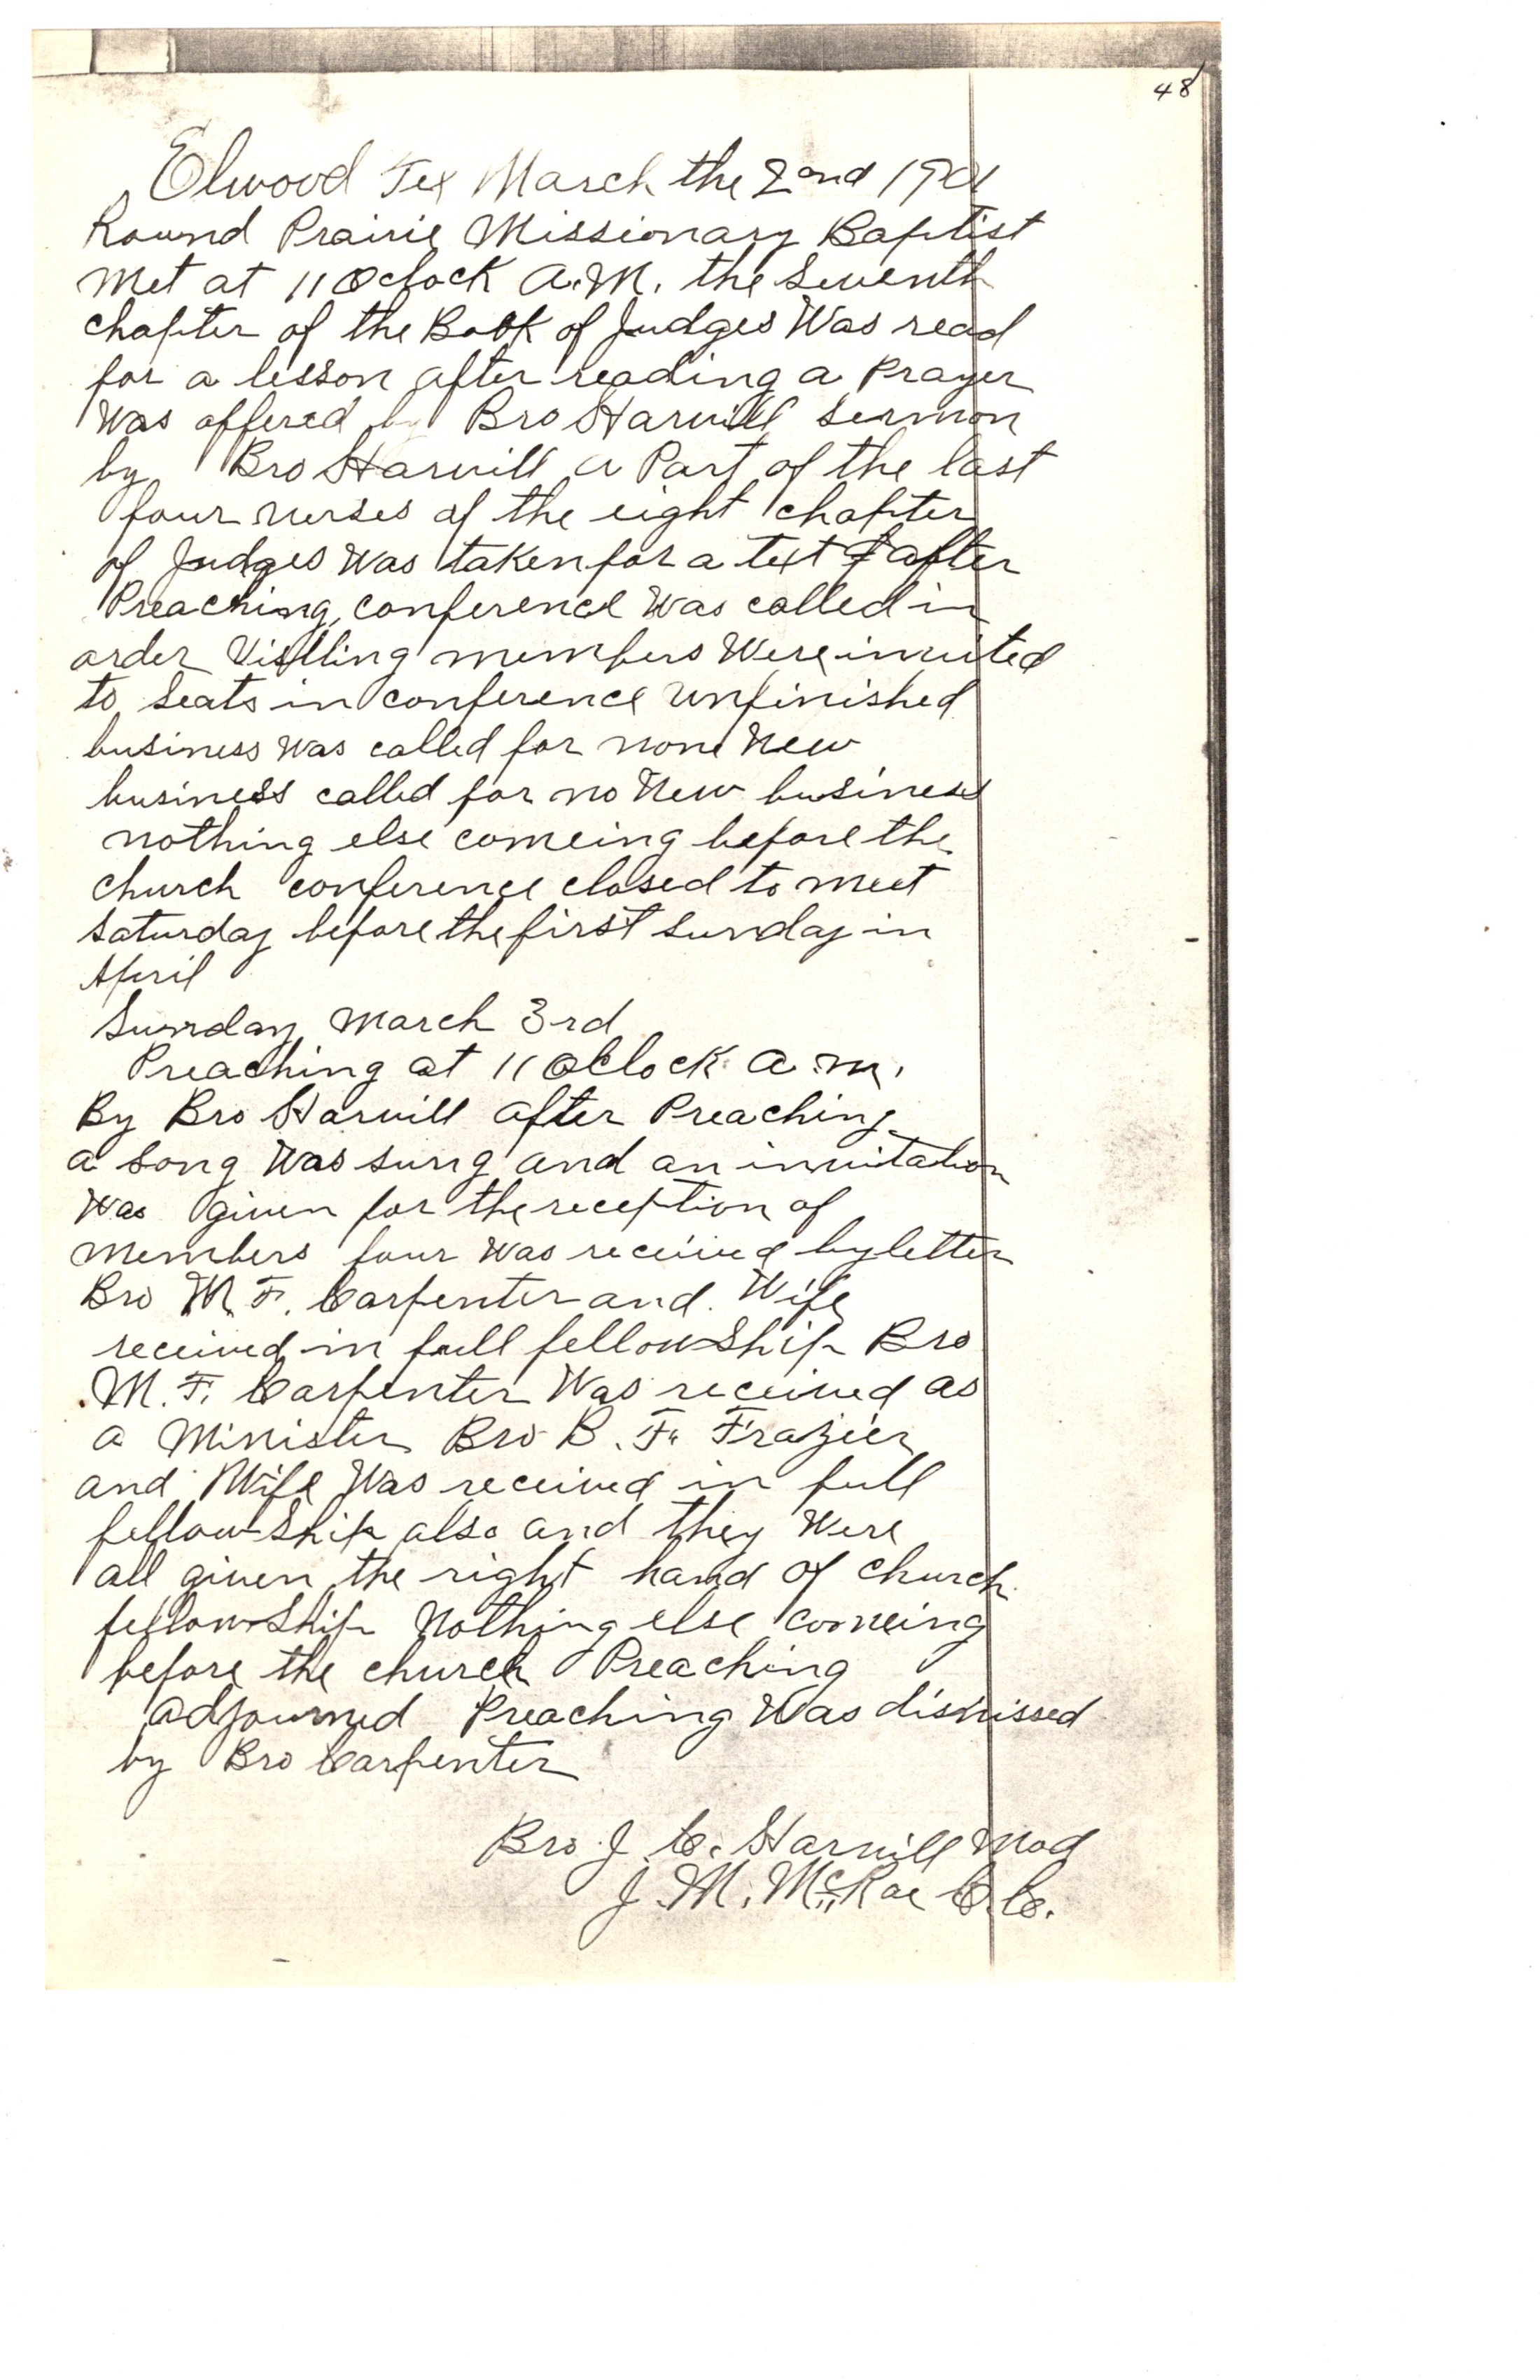 48
Elwood Tex March the 2nd 1901
Round Prairie Missionary Baptist
Met at 11 Oclock A.M. the Seventh
chapter of the Book of Judges Was read
for a lesson after reading a Prayer
Was offered by Bro Harvill Sermon
by Bro Harvill a Part of the last
four verses of the eight chapter
of Judges Was taken for a text & after
Preaching, conference Was called in
order Visitling members Were invited
to Seats in conference unfinished
business was called for none New
business called for no New business
nothing else comeing before the
church conference closed to meet
Saturday before the first Sunday in
April
Sunday March 3rd
Preaching at 11 OClock A.M.
By Bro Harvill after Preaching
a song Was sung and an invitation
Was given for the reception of
members four Was received by letter
Bro M. F. Carpenter and Wife
received in full fellowShip Bro
M. F. Carpenter Was received as
a Minister Bro B. F. Frazier
and Wife Was received in full
fellowShip also and they Were
all given the right hand of church
fellowShip Nothing else comeing
before the church Preaching
adjourned Preaching Was dismissed
by Bro Carpenter
Bro J. C. Harvill Mod
J. M. McRae C.C.